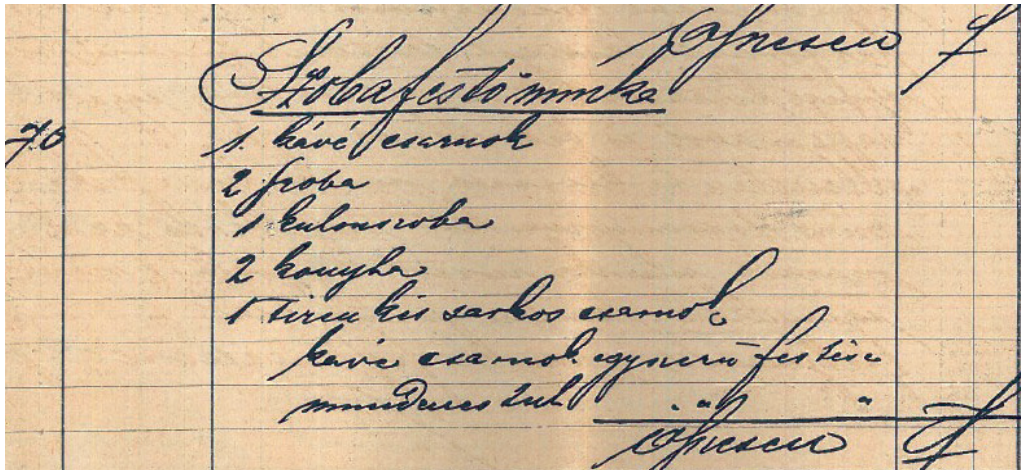 Összesen f
Szobafestő munka
70 1. kávé csarnok
2 szoba
1 kulonszoba
2 konyha
1 kis sarkos csarnok
kávé csarnok egyszerű festése
mindenestul
Összesen f